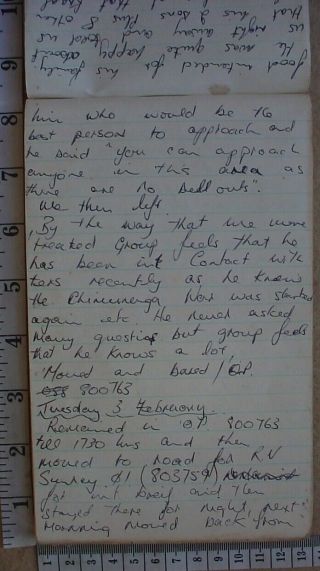 food intended for his family.
He was quite happy about
us right away and told us
that his 2 sons plus 8 other
him who would be the
best person to approach and
he said "you can approach
anyone in this area as
there are no sell outs".
We then left.
By the way that we were
treated Group feels that he
has been in contact with
ters recently as he knew
the Chimurenga War was started
again etc. He never asked
many questions but group feels
that he knows a lot.
Moved and based / O.P.
800763
Tuesday 3 February.
Remained in O.P. 800763
till 1730 hrs and then
moved to road for R.V
(803759)
and then
stayed there for night, next
morning moved back from
9
8
7
6
5
4
3
2
1
1 2 3 4 5 6 7 8 9 10 11 12 13